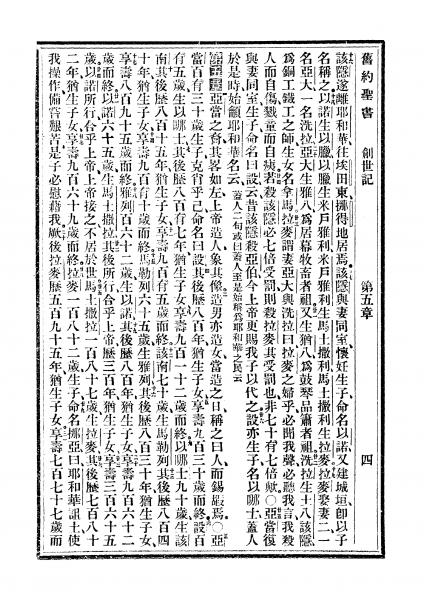 舊約聖書 創世記 第五章 四
該隱遂離耶和華往埃田東挪得地居焉該隱與妻同室懷妊生子命名以諾又建城垣卽以子
名稱之以諾生以臘以臘生米戶雅利米戶雅利生馬土撒利馬土撒利生拉麥拉麥娶妻二一
名亞大一名洗拉亞大生雅八爲居幕牧畜者祖又生猶八爲鼓琴品簫者祖洗拉生土八該隱
爲銅工鐵工之師生女名拿馬拉麥謂妻亞大與洗拉曰拉麥之婦乎必聞我聲必聽我言我殺
人而自傷戮童而自痍若殺該隱必七倍受罰則殺拉麥其受罰也非七十有七倍歟〇亞當復
與妻同室生子命名曰設云昔該隱殺亞伯今上帝更賜我子以代之設亦生子名以哪士蓋人
於是時始籲耶和華名云蓋人二句或曰蓋人至是始稱爲耶和華之民云
第五章亞當之裔其畧如左上帝造人象其像造男亦造女當造之日稱之曰人而錫嘏焉〇亞
當百有三十歲生子克肖乎己命名曰設其後歷八百年猶生子女享壽九百三十歲而終設百
有五歲生以哪士其後歷八百有七年猶生子女享壽九百一十二歲而終以哪士九十歲生該
南其後歷八百十五年猶生子女享壽九百有五歲而終該南七十歲生馬勒列其後歷八百四
十年猶生子女享壽九百有十歲而終馬勒列六十五歲生雅列其後歷八百三十年猶生子女
享壽八百九十五歲而終雅列百六十二歲生以諾其後歷八百年猶生子女享壽九百六十二
歲而終以諾六十五歲生馬土撒拉其後行合乎上帝歷三百年猶生子女享壽三百六十五
歲以諾所行合乎上帝上帝接之不居於世馬土撒拉一百八十七歲生拉麥其後歷七百八十
二年猶生子女享壽九百六十九歲而終拉麥一百八十二歲生子命名挪亞曰耶和華詛土使
我操作備嘗艱苦是子必慰藉我厥後拉麥歷五百九十五年猶生子女享壽七百七十七歲而